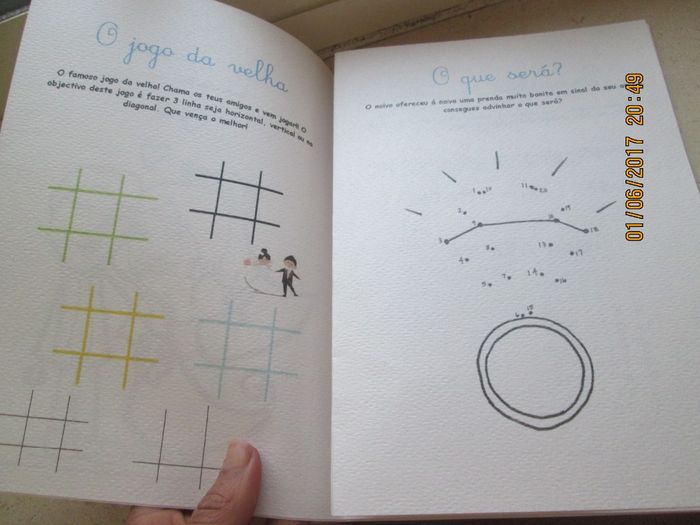 O jogo da velha
O famoso jogo da velha! Chama os teus amigos e vem jogar!! O
objectivo deste jogo é fazer 3 linha seja horizontal, vertical ou na
diagonal. Que vença o melhor!
O que será?
O noivo ofereceu á noiva uma prenda muito bonita em sinal do seu
consegues advinhar o que será?
1 10 11 20
2 9 19
3 18
4 8 13 17
5 7 14 16
6 15
01/06/2017 20:49